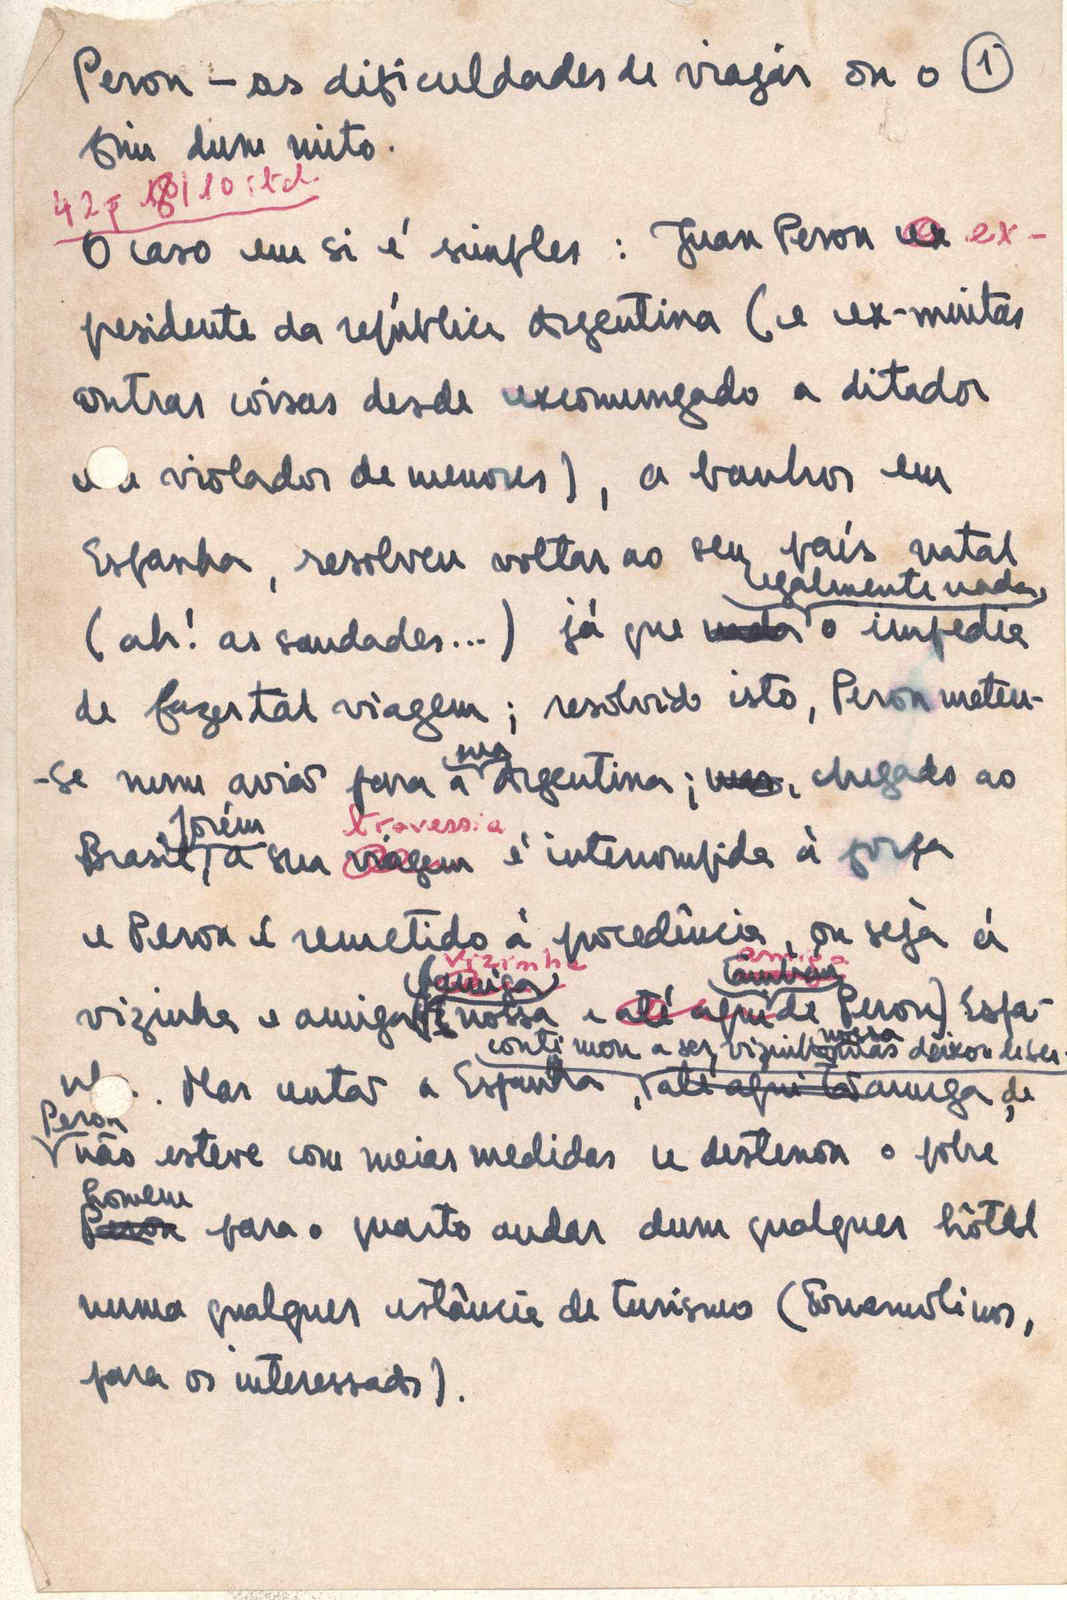 Peron – as dificuldades de viajar ou o ①
fim dum mito.
42p 10 std.
O caso em si é simples : Juan Peron ex-
presidente da república Argentina (e ex-muitas
outras coisas desde excomungado a ditador
e a violador de menores), a banhos em
Espanha, resolveu voltar ao seu país natal
legalmente nada
(ah! as saudades...) já que nada o impedia
de fazer tal viagem; resolvido isto, Peron meteu-
-se num avião para a Argentina; mas, chegado ao
porém travessia
Brasil, a sua viagem é interrompida à força
e Peron é remetido à procedência, ou seja á
vizinha amiga
(amiga também
vizinha e amiga nossa e até aqui de Peron) Espa-
continou a ser vizinha nossa mas deixou de ser
nha. Mas então a Espanha, até aqui tão amiga de
Peron
não esteve com meias medidas e desterrou o pobre
homem
Peron para o quarto andar dum qualquer hôtel
numa qualquer estância de turismo (Torremolinos,
para os interessados).